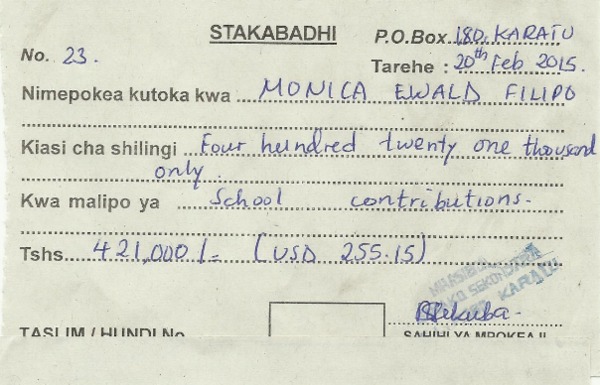 STAKABADHI
P.O.Box 180, KARATU
No. 23.
Tarehe : 20th Feb 2015.
Nimepokea kutoka kwa MONICA EWALD FILIPO
Kiasi cha shilingi Four hundred twenty one thousand
only.
Kwa malipo ya School contributions.
Tshs 421,000/= (USD 255.15)
SEKONDARI
KARATU
TASLIM / HUNDI No.
SAHIHI YA MPOKEAJI